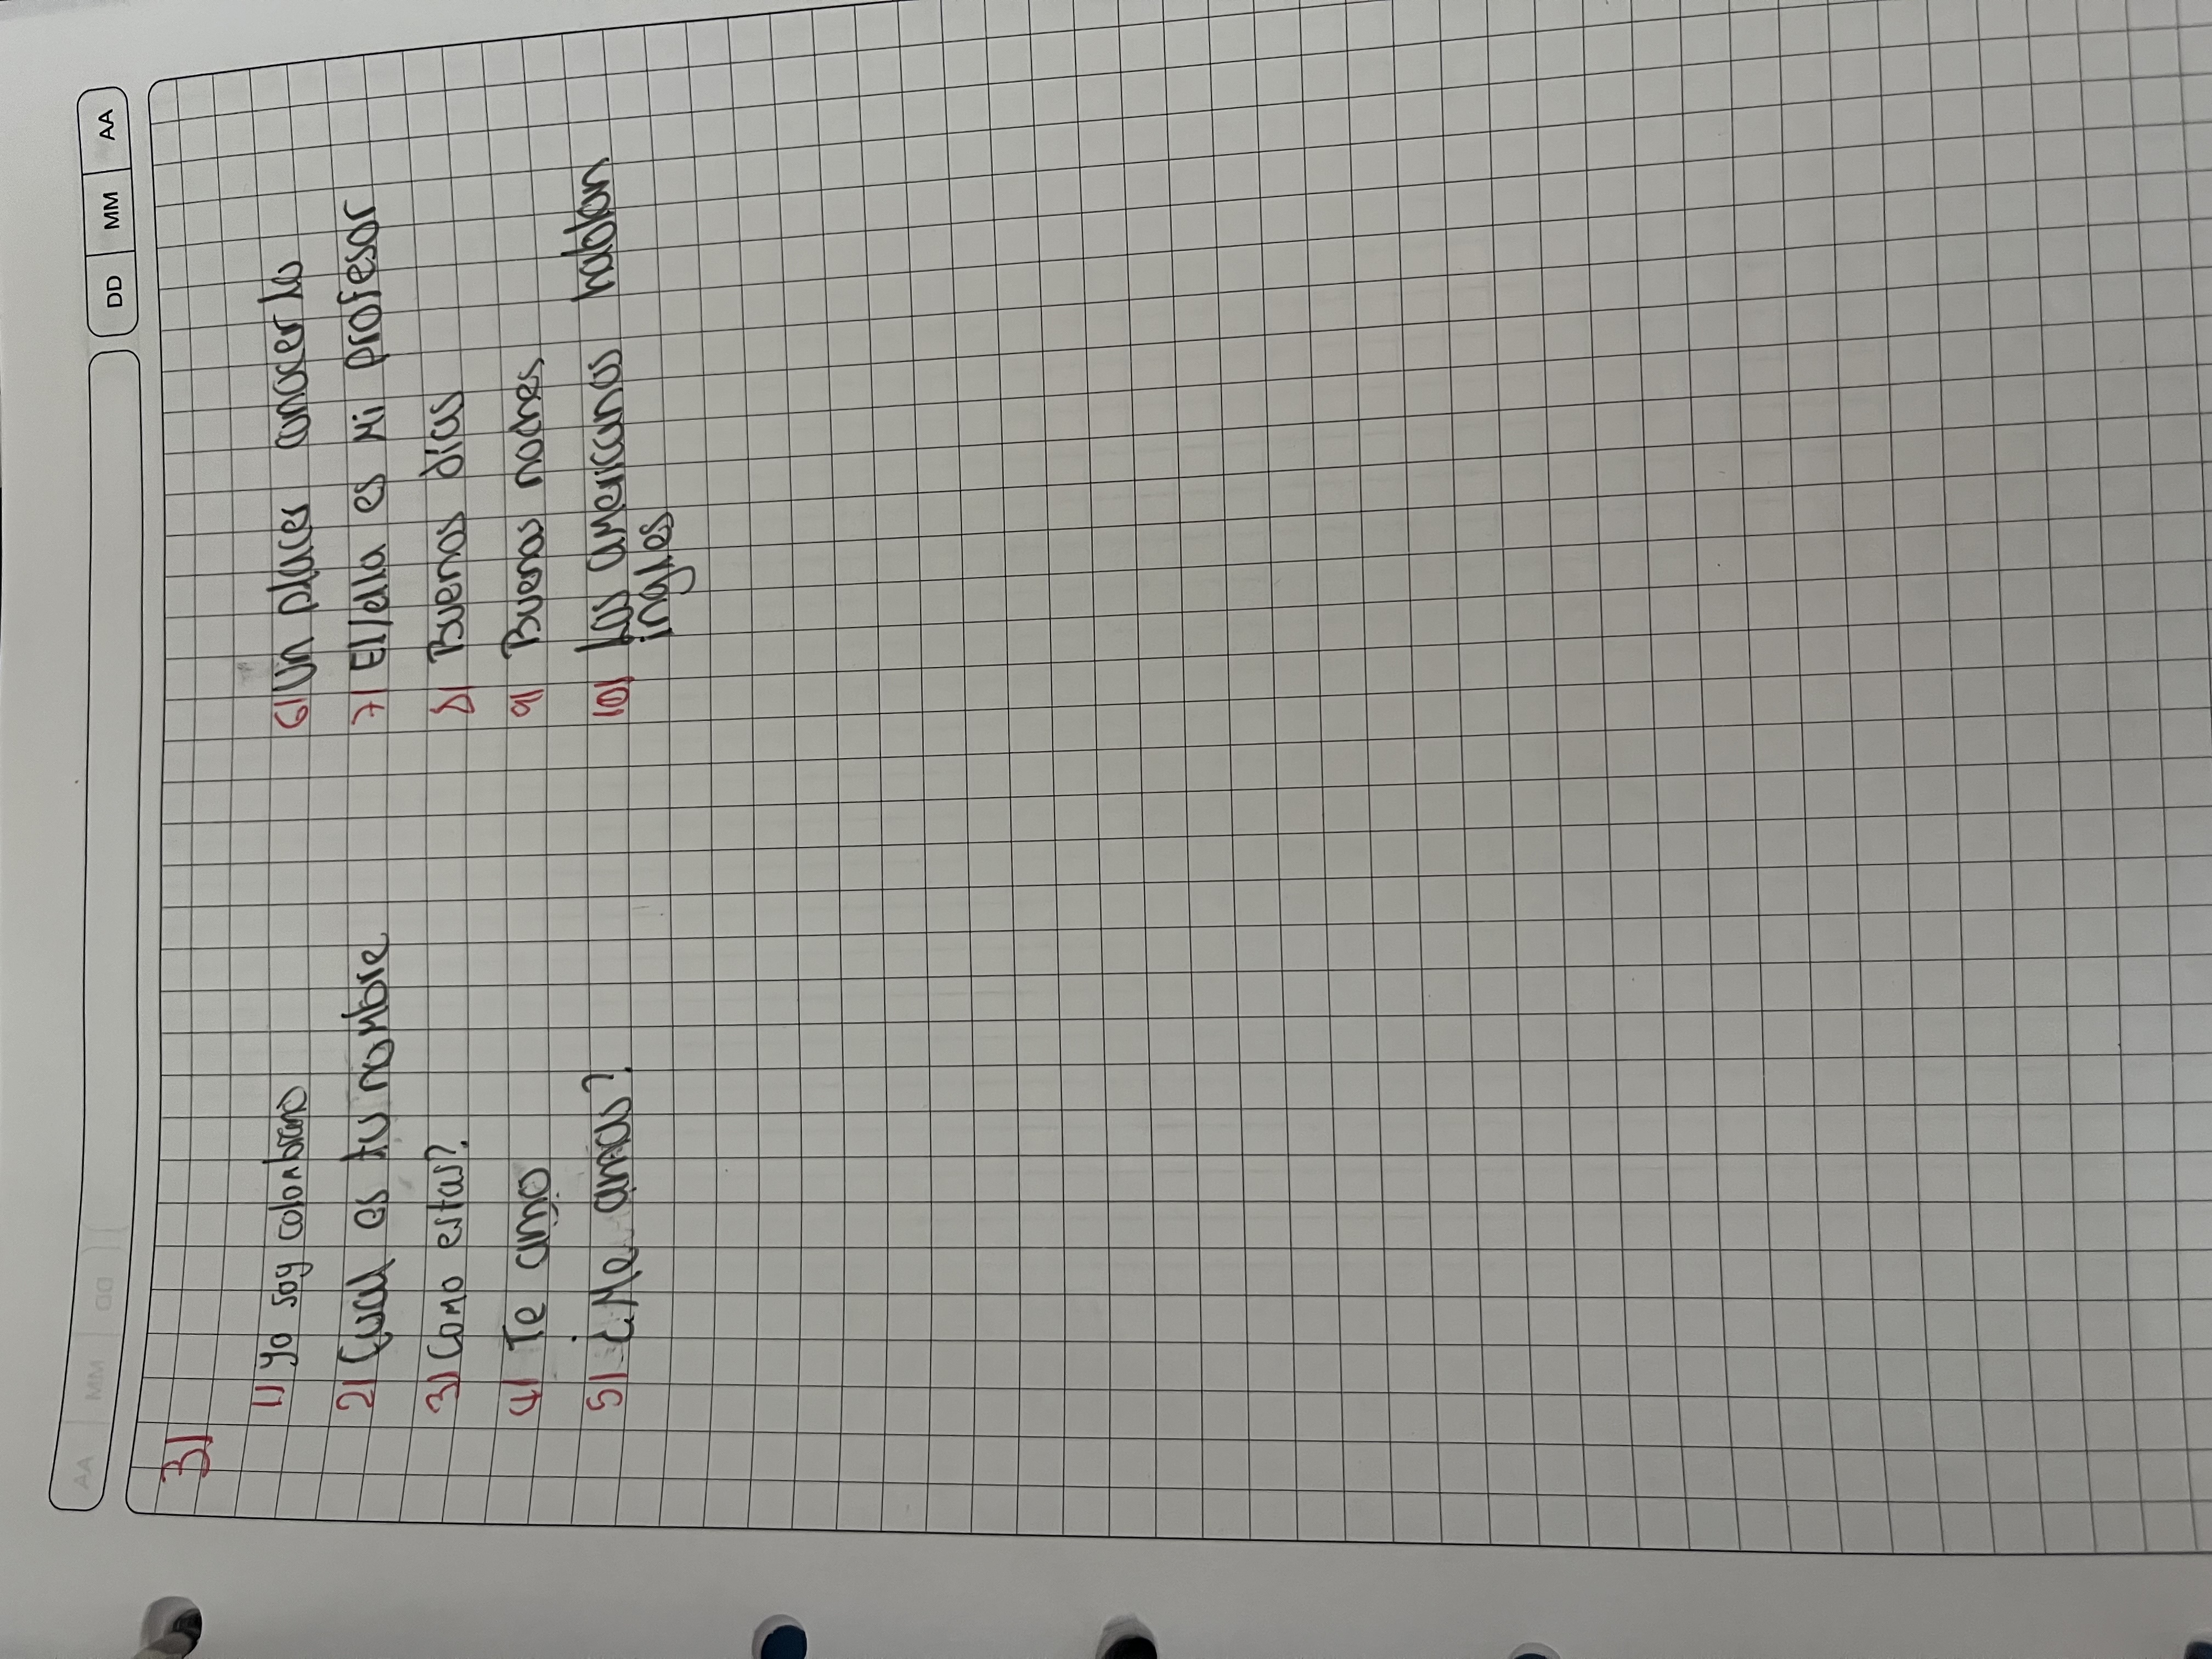 AA MM DD
DD MM AA
3)
1) Yo soy colombiano
2) Cual es tu nombre
3) Como estas?
4) Te amo
5) ¿Me amas?
6) Un placer conocerlo
7) El/ella es mi profesor
8) Buenos días
9) Buenas noches
10) Los americanos hablan
ingles